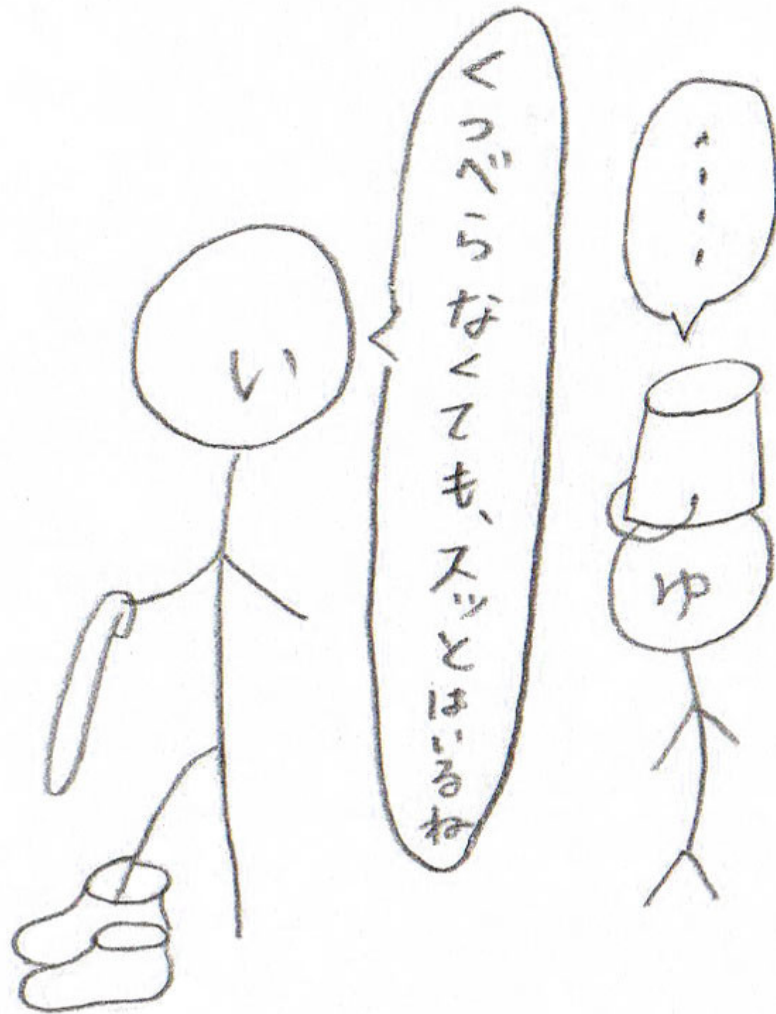 ・・・・
ゆ
くつべらなくても、スッとはいるね
い